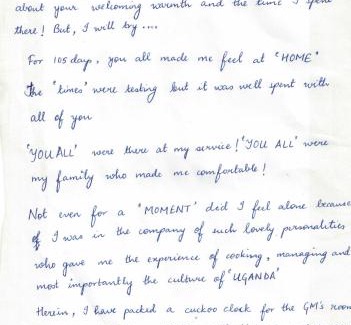 about your welcoming warmth and the time I spent
there! But, I will try ....
For 105 days, you all made me feel at "HOME"
The "times" were testing but it was well spent with
all of you
'YOU ALL' were there at my service! 'YOU ALL' were
my family who made me comfortable!
Not even for a "MOMENT" did I feel alone because
I was in the company of such lovely personalities
who gave me the experience of cooking, managing and
most importantly the culture of 'UGANDA'
Herein, I have packed a cuckoo clock for the GM's room